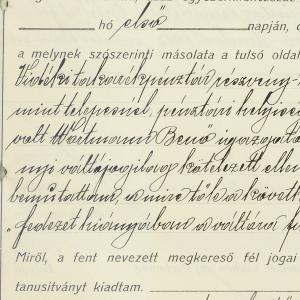 hó első napján, d
a melynek szószerinti másolata a tulsó oldal
Vidéki takarékpénztár részvény-
mint telepesnél, pénztári helyisé
volt Hartmann Benő igazgató
nyi váltójogilag kötelezett ellen
bemutattam, a mire tőle a követk
„fedezet hiányában a váltót f
Miről, a fent nevezett megkereső fél jogai
tanusítványt kiadtam.